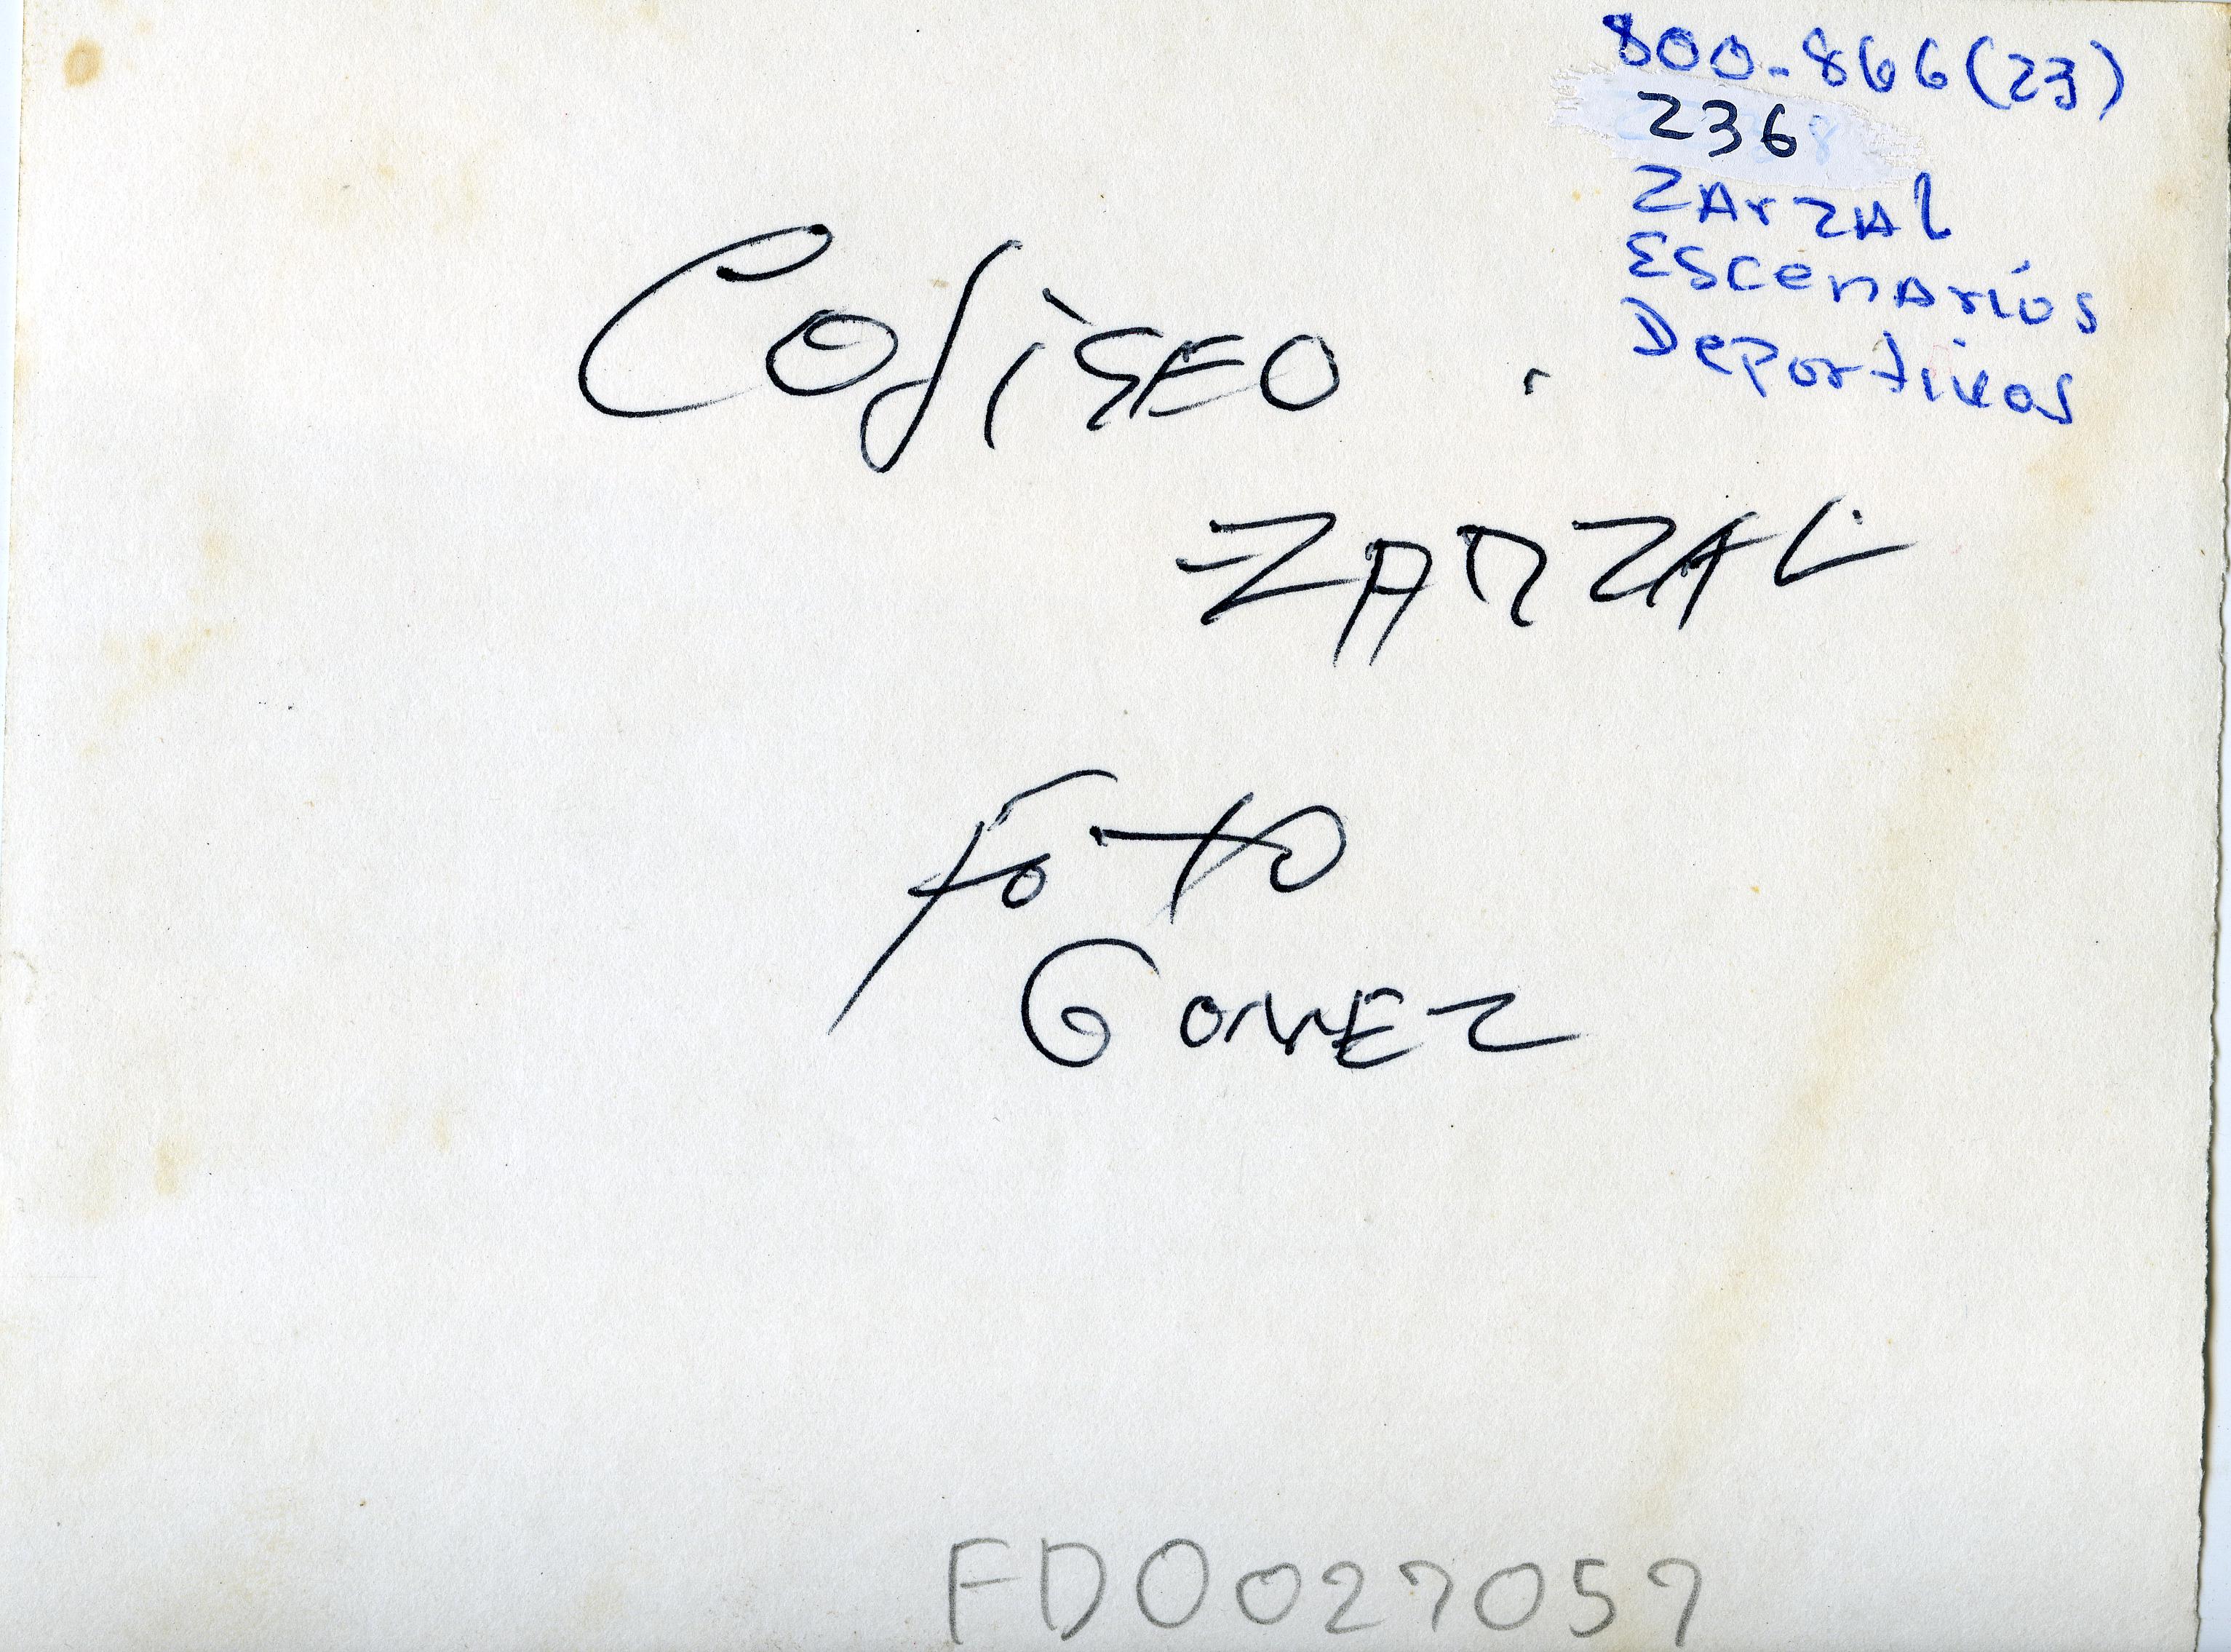 800-866(23)
236
Zarzal
Escenarios
Deportivos
Coliseo
ZARZAL
Foto
GOMEZ
FD0027057